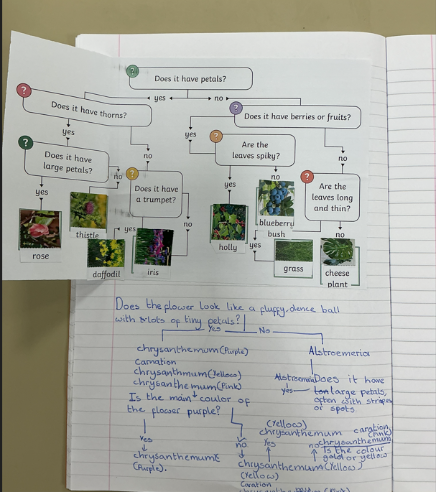 Does it have petals?
yes
no
Does it have thorns?
Does it have berries or fruits?
yes
no
yes
no
Are the
leaves spiky?
Does it have
large petals?
Does it have
a trumpet?
Are the
leaves long
and thin?
yes
no
yes
no
yes
no
yes
no
rose
thistle
daffodil
iris
holly
blueberry
bush
grass
cheese
plant
Does the flower look like a fluffy, dence ball
with lots of tiny petals?
Yes
No
chrysanthemum (Purple)
Carnation
chrysanthmum (Yellow)
chrysanthemum (Pink)
Is the main coulor of
the flower purple?
Alstroemeria
Alstroemeria
Does it have
yes
large petals,
often with stripes
or spots.
Yes
chrysanthemum
(Purple).
no
(Yellow)
chrysanthemum
Yes
no
(Pink)
chrysanthemum
Is the colour
gold or yellow
chrysanthemum (Yellow)
(Yellow)